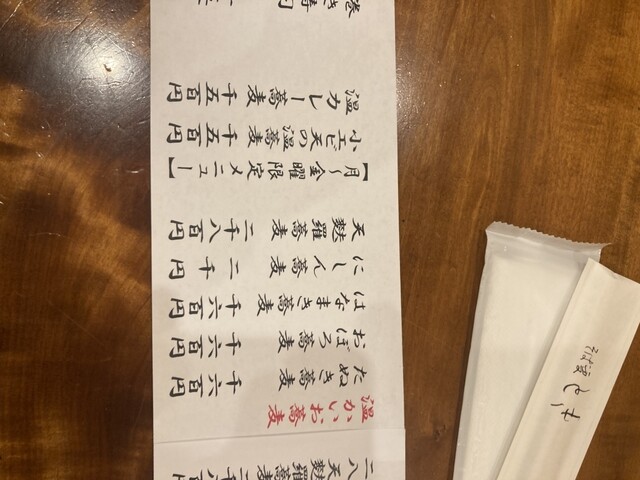 二八天麩羅蕎麦
温かいお蕎麦
たぬき蕎麦 千六百円
おぼろ蕎麦 千六百円
はなまき蕎麦 千六百円
にしん蕎麦 二千円
天麩羅蕎麦 二千八百円
【月〜金曜限定メニュー】
小エビ天の温蕎麦 千五百円
温カレー蕎麦 千五百円
巻き寿司